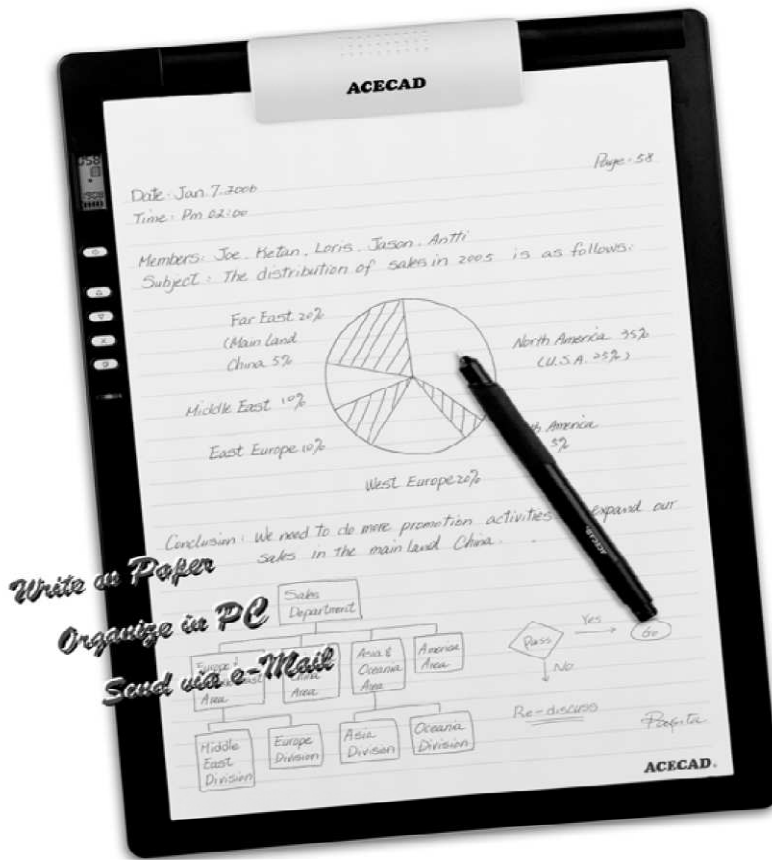 ACECAD
Page: 58
Date: Jan. 7. 2006
Time: Pm 02:00
Members: Joe, Ketan, Loris, Jason, Antti
Subject: The distribution of sales in 2005 is as follows:
Far East 20%
(Main Land
China 5%
North America 35%
(U.S.A. 25%)
Middle East 10%
America
East Europe 10%
West Europe 20%
Conclusion: We need to do more promotion activities expand our
sales in the main land China.
Write on Paper
Organize in PC
Send via e-Mail
Sales
Department
Europe &
Area
China
Area
Asia &
Oceania
Area
America
Area
Middle
East
Division
Europe
Division
Asia
Division
Oceania
Division
Pass
Yes
Go
No
Re-discuss
ACECAD
ACECAD.